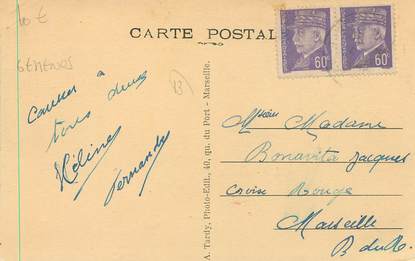 10 €
CARTE POSTAL
GEMENOS
à
tous deux
Héline
Fernande
13
A. Tardy, Photo-Edit., 40, qu. du Port - Marseille.
60c
60c
Madame
Bonavita Jacques
Croix Rouge
Marseille
B du R.